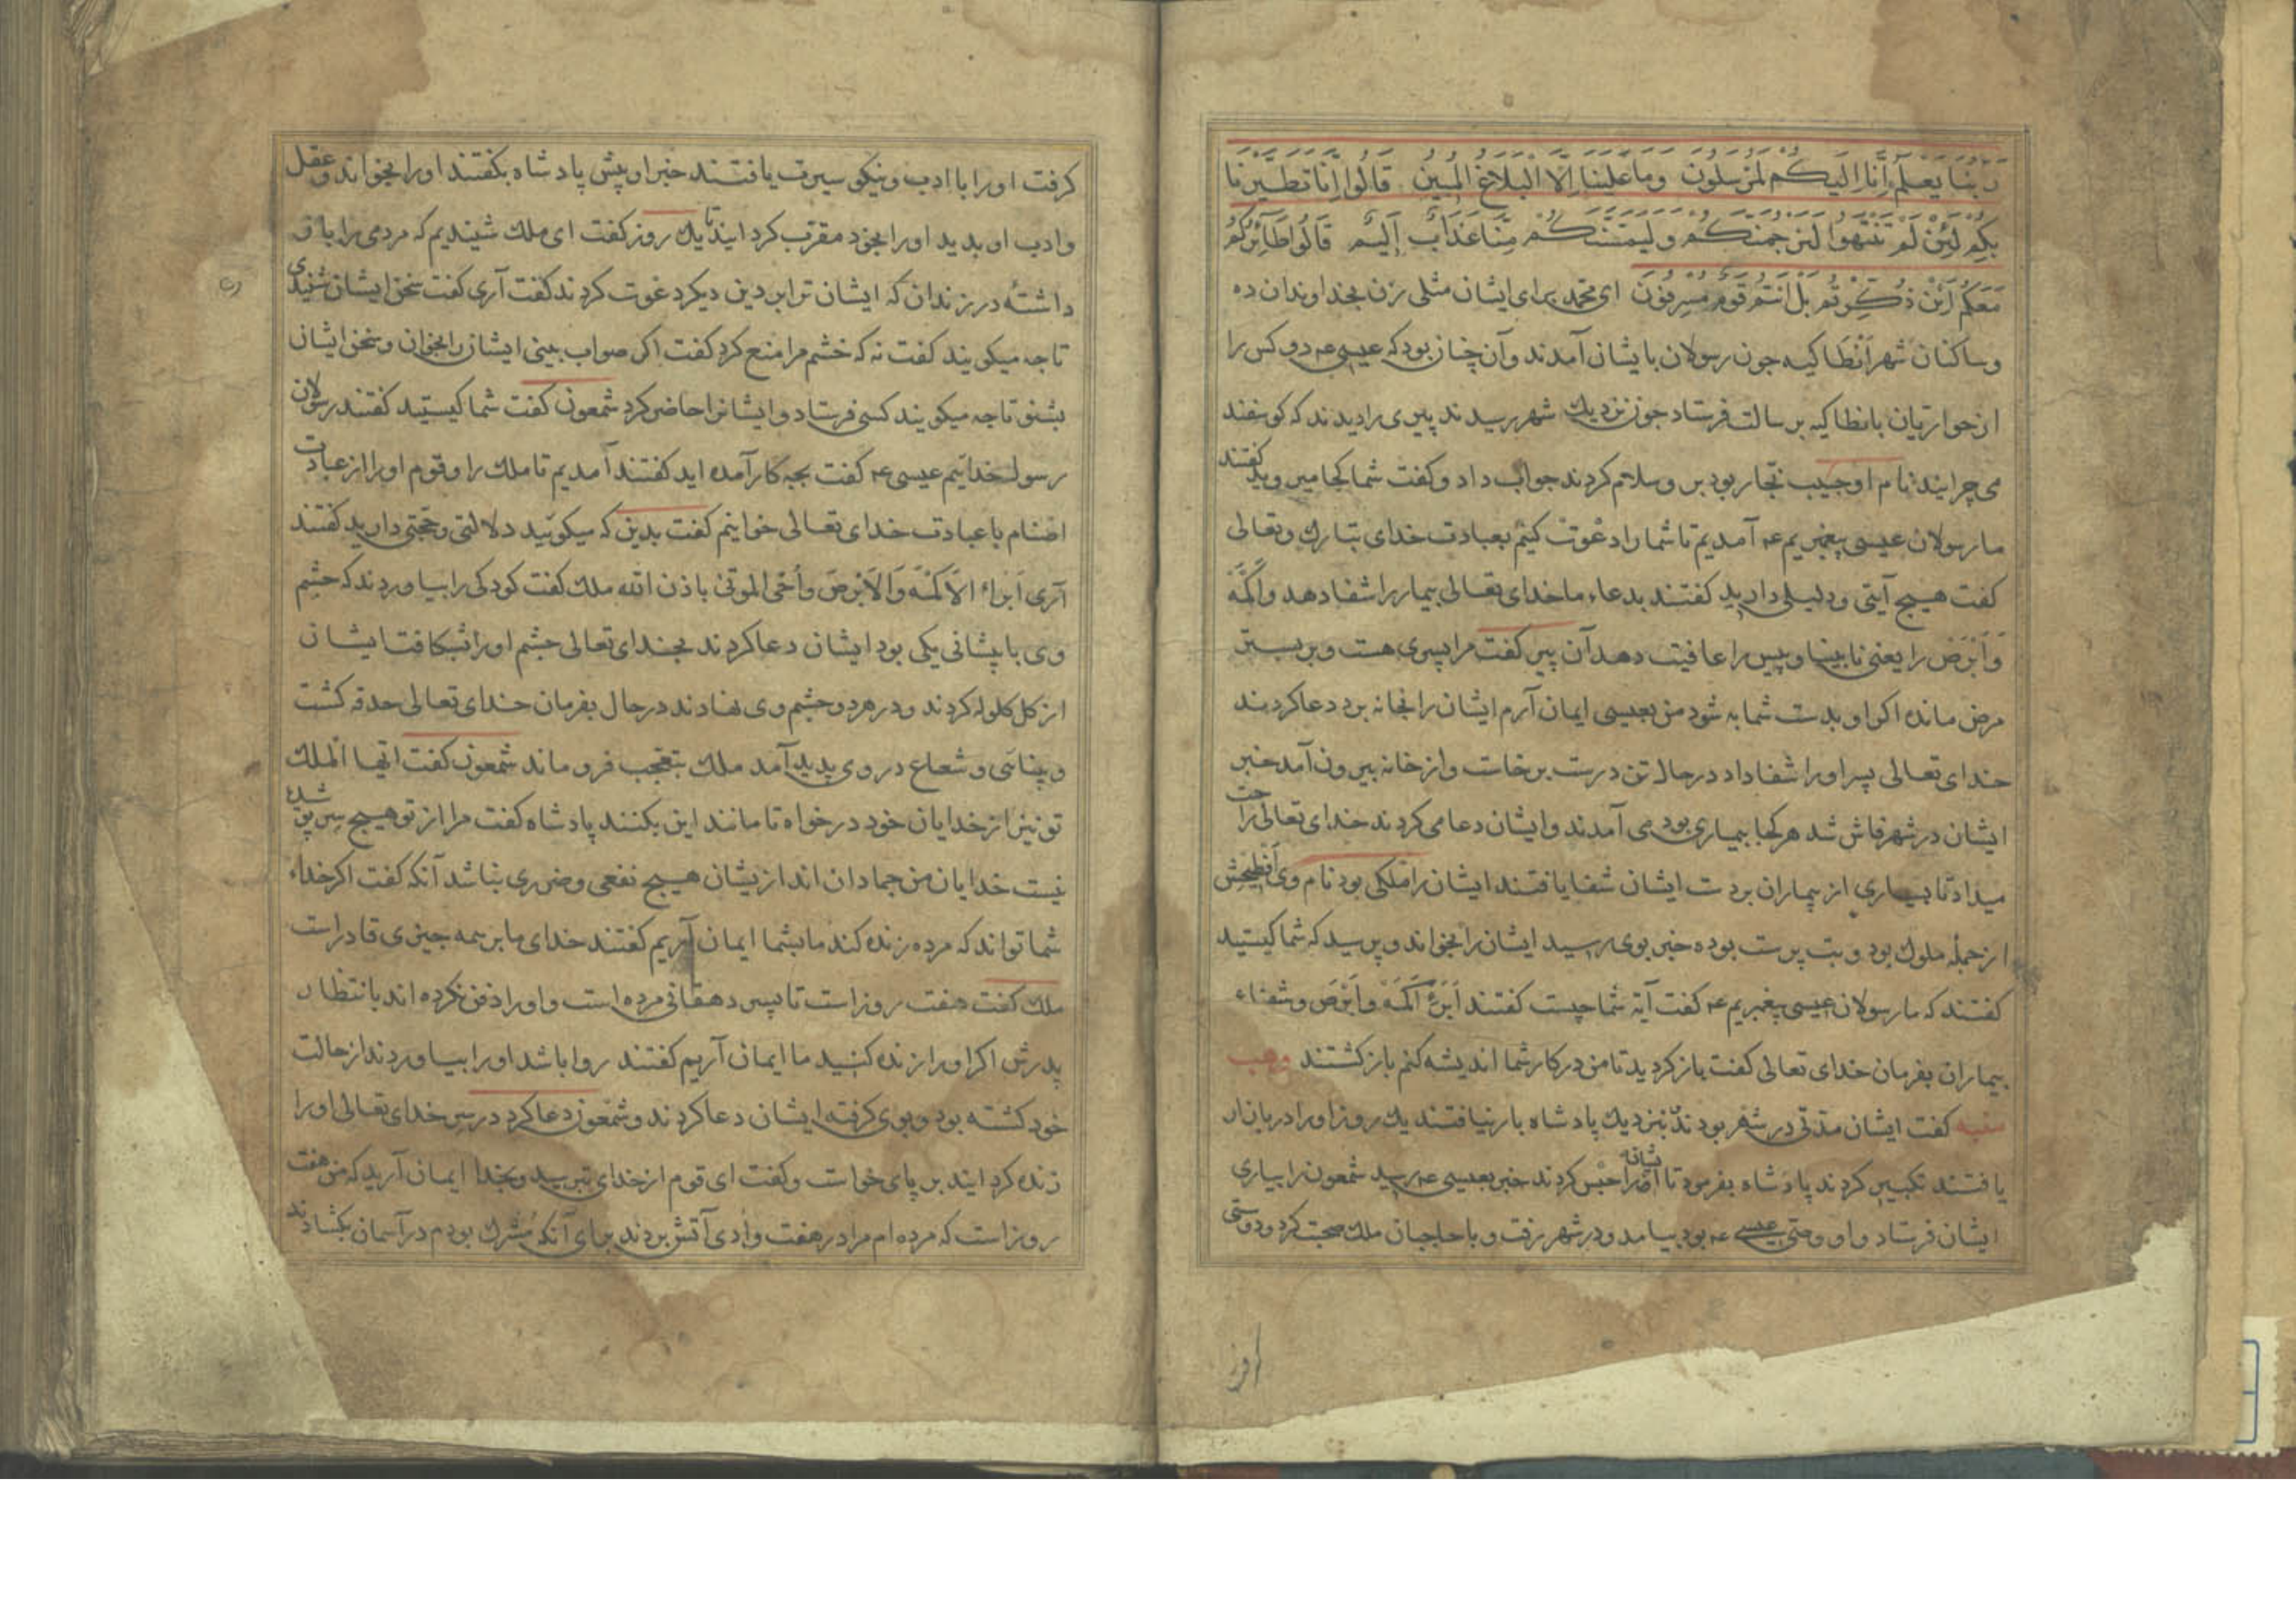 رَبُّنَا يَعْلَمُ اِنَّا اِلَيْكُمْ لَمُرْسَلُونَ وَمَا عَلَيْنَا اِلَّا الْبَلَاغُ الْمُبِينُ قَالُوا اِنَّا تَطَيَّرْنَا
بِكُمْ لَئِنْ لَمْ تَنْتَهُوا لَنَرْجُمَنَّكُمْ وَلَيَمَسَّنَّكُمْ مِنَّا عَذَابٌ اَلِيمٌ قَالُوا طَائِرُكُمْ
مَعَكُمْ اَئِنْ ذُكِّرْتُمْ بَلْ اَنْتُمْ قَوْمٌ مُسْرِفُونَ ای محمد برای ایشان مثلی بزن بخداوندان ده
وساکنان شهر اَنْطَاکیه جون رسولان بایشان آمدند وآن چنان بود که عیسی عم دو کس را
از حواریان بانطاکیه برسالت فرستاد جون نزدیك شهر رسیدند پیری را دیدند که کوسفند
می چرایند نام او حبیب نجار بود بر وسلام کردند جواب داد وکفت شما کجا میروید کفتند
ما رسولان عیسی پیغمبریم عم آمدیم تا شما را دعوت کنیم بعبادت خدای تبارك وتعالی
کفت هیچ آیتی ودلیلی دارید کفتند بدعاء ما خدای تعالی بیمار را شفا دهد واَکْمَه
وَاَبْرَصْ را یعنی نابینا وپیس را عافیت دهد آن پیر کفت مرا پسری هست وبر بستر
مرض مانده اکر او بدست شما به شود من بعیسی ایمان آرم ایشان را بخانه برد دعا کردند
خدای تعالی پسر او را شفا داد درحال تن درست برخاست واز خانه بیرون آمد خبر
ایشان در شهر فاش شد هر کجا بیماری بود می آمدند وایشان دعا می کردند خدای تعالی راحت
میداد تا بسیاری از بیماران بردست ایشان شفا یافتند ایشان را ملکی بود نام وی
از جمله ملوك بود وبت پرست بوده خبر بوی رسید ایشان را بخواند وپرسید که شما کیستید
کفتند که ما رسولان عیسی پیغمبریم عم کفت آیة شما چیست کفتند اَبْرَءُ اَکْمَهْ واَبْرَصَ وشفاء
بیماران بفرمان خدای تعالی کفت باز کردید تا من در کار شما اندیشه کنم باز کشتند وهب
منبه کفت ایشان مدتی در شهر بودند بنزدیك پادشاه بار نیافتند یك روز او را در بازار
یافتند تکبیر کردند پادشاه بفرمود تا ایشانرا حبس کردند خبر بعیسی عم رسید شمعون را بیاری
ایشان فرستاد واو وصی عیسی عم بود بیامد ودر شهر رفت وبا حاجبان ملك صحبت کرد ودوستی
کرفت او را با ادب ونیکو سیرت یافتند خبر او پیش پادشاه بکفتند او را بخواند وعقل
وادب او بدید او را بخود مقرب کردانید تا یك روز کفت ای ملك شنیدیم که مردمی را باز
داشتهٔ در زندان که ایشان ترا بدین دیکر دعوت کردند کفت آری کفت سخن ایشان شنیدی
تا چه میکویند کفت نه که خشم مرا منع کرد کفت اکر صواب بینی ایشان را بخوان وسخن ایشان
بشنو تا چه میکویند کسی فرستاد وایشانرا حاضر کرد شمعون کفت شما کیستید کفتند رسولان
رسول خداییم عیسی عم کفت بچه کار آمده اید کفتند آمدیم تا ملك را وقوم او را از عبادت
اصنام با عبادت خدای تعالی خوانیم کفت بدین که میکوئید دلالتی وحجتی دارید کفتند
آری اَبْراءُ الاَکْمَهَ وَالاَبْرَصَ واُحْیِ الموتی باذن الله ملك کفت کودکی را بیاوردند که چشم
وی با پیشانی یکی بود ایشان دعا کردند بخدای تعالی چشم او را بشکافت ایشان
از کل کلوله کردند ودر هر دو چشم وی نهادند درحال بفرمان خدای تعالی حدقه کشت
وبینائی وشعاع در وی پدید آمد ملك بتعجب فرو ماند شمعون کفت ایها الملك
تو نیز از خدایان خود درخواه تا مانند این بکنند پادشاه کفت مرا از تو هیچ سر پوشیده
نیست خدایان من جمادان اند ازیشان هیچ نفعی وضرری نباشد آنکه کفت اکر خداء
شما تواند که مرده زنده کند ما بشما ایمان آریم کفتند خدای ما بر همه چیزی قادر است
ملك کفت هفت روز است تا پسر دهقانی مرده است واو را دفن نکرده اند بانتظار
پدرش اکر او را زنده کنید ما ایمان آریم کفتند روا باشد او را بیاوردند از حالت
خود کشته بود وبوی کرفته ایشان دعا کردند وشمعون دعا کرد در سر خدای تعالی او را
زنده کردانید بر پای خواست وکفت ای قوم از خدای بترسید وبخدا ایمان آرید که من هفت
روز است که مرده ام مرا در هفت وادی آتش بردند برای آنکه مشرك بودم در آسمان بکشادند